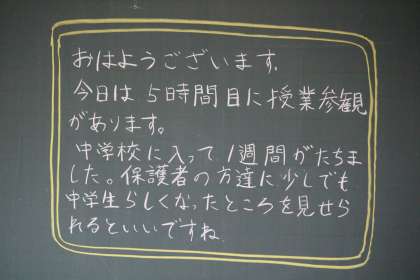 おはようございます。
今日は5時間目に授業参観
があります。
中学校に入って1週間がたちま
した。保護者の方達に少しでも
中学生らしくなったところを見せら
れるといいですね